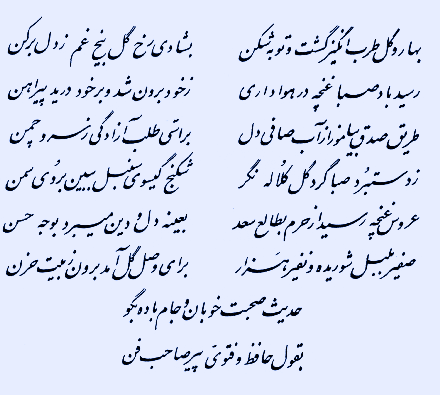 بهار و گل طرب انگیز گشت و توبه شکن بشادی رخ گل بیخ غم ز دل برکن
رسید باد صبا غنچه در هواداری ز خود برون شد و بر خود درید پیراهن
طریق صدق بیاموز از آب صافی دل براستی طلب آزادگی ز سرو چمن
ز دستبرد صبا گرد گل کلاله نگر شکنج گیسوی سنبل ببین بروی سمن
عروس غنچه رسید از حرم بطالع سعد بعینه دل و دین میبرد بوجه حسن
صفیر بلبل شوریده و نفیر هزار برای وصل گل آمد برون ز بیت حزن
حدیث صحبت خوبان و جام باده بگو
بقول حافظ و فتوی پیر صاحب فن